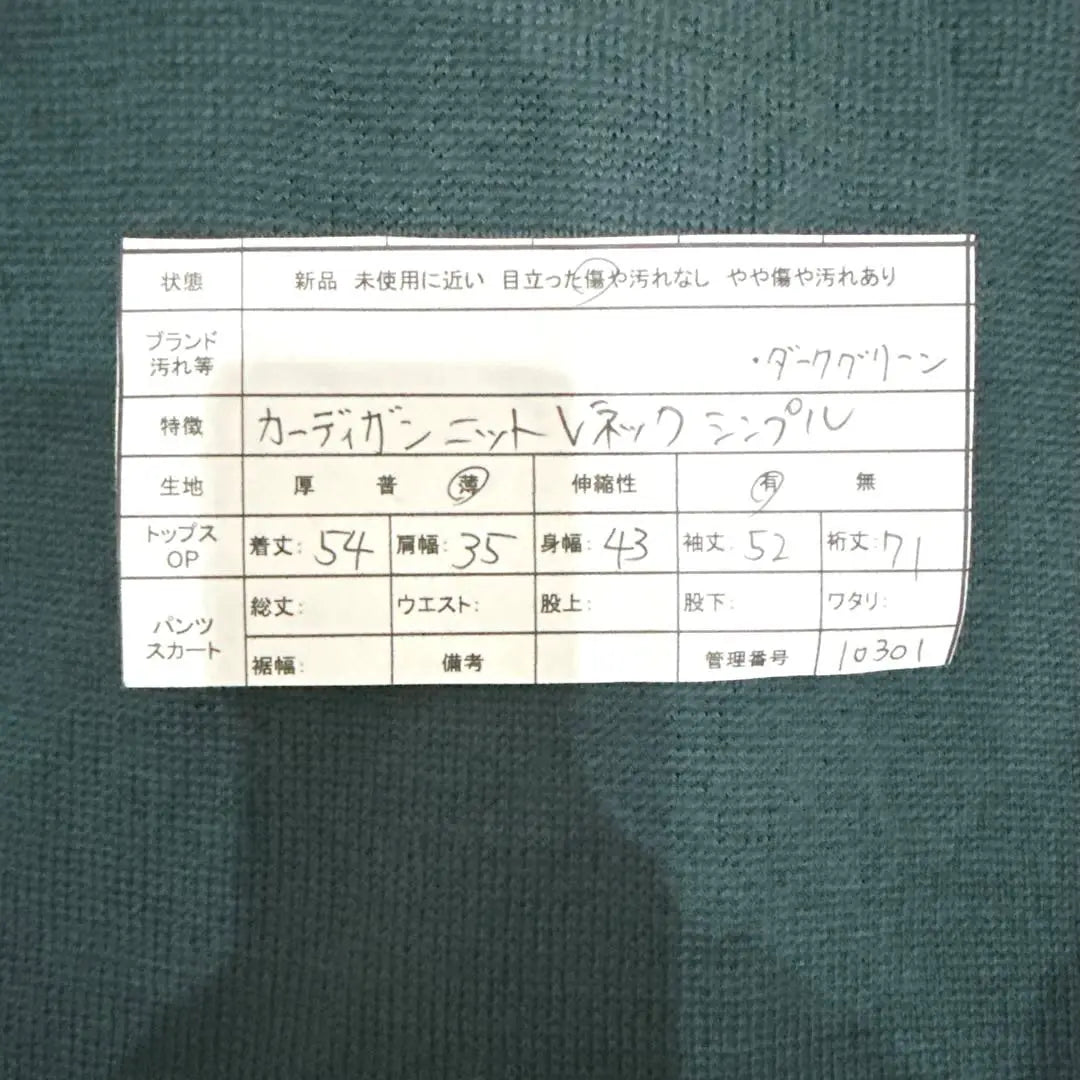 状態 新品 未使用に近い 目立った傷や汚れなし やや傷や汚れあり
ブランド
汚れ等 ・ダークグリーン
特徴 カーディガン ニット Vネック シンプル
生地 厚 普 薄 伸縮性 有 無
トップス
OP 着丈: 54 肩幅: 35 身幅: 43 袖丈: 52 裄丈: 71
パンツ
スカート 総丈: ウエスト: 股上: 股下: ワタリ:
裾幅: 備考 管理番号 10301